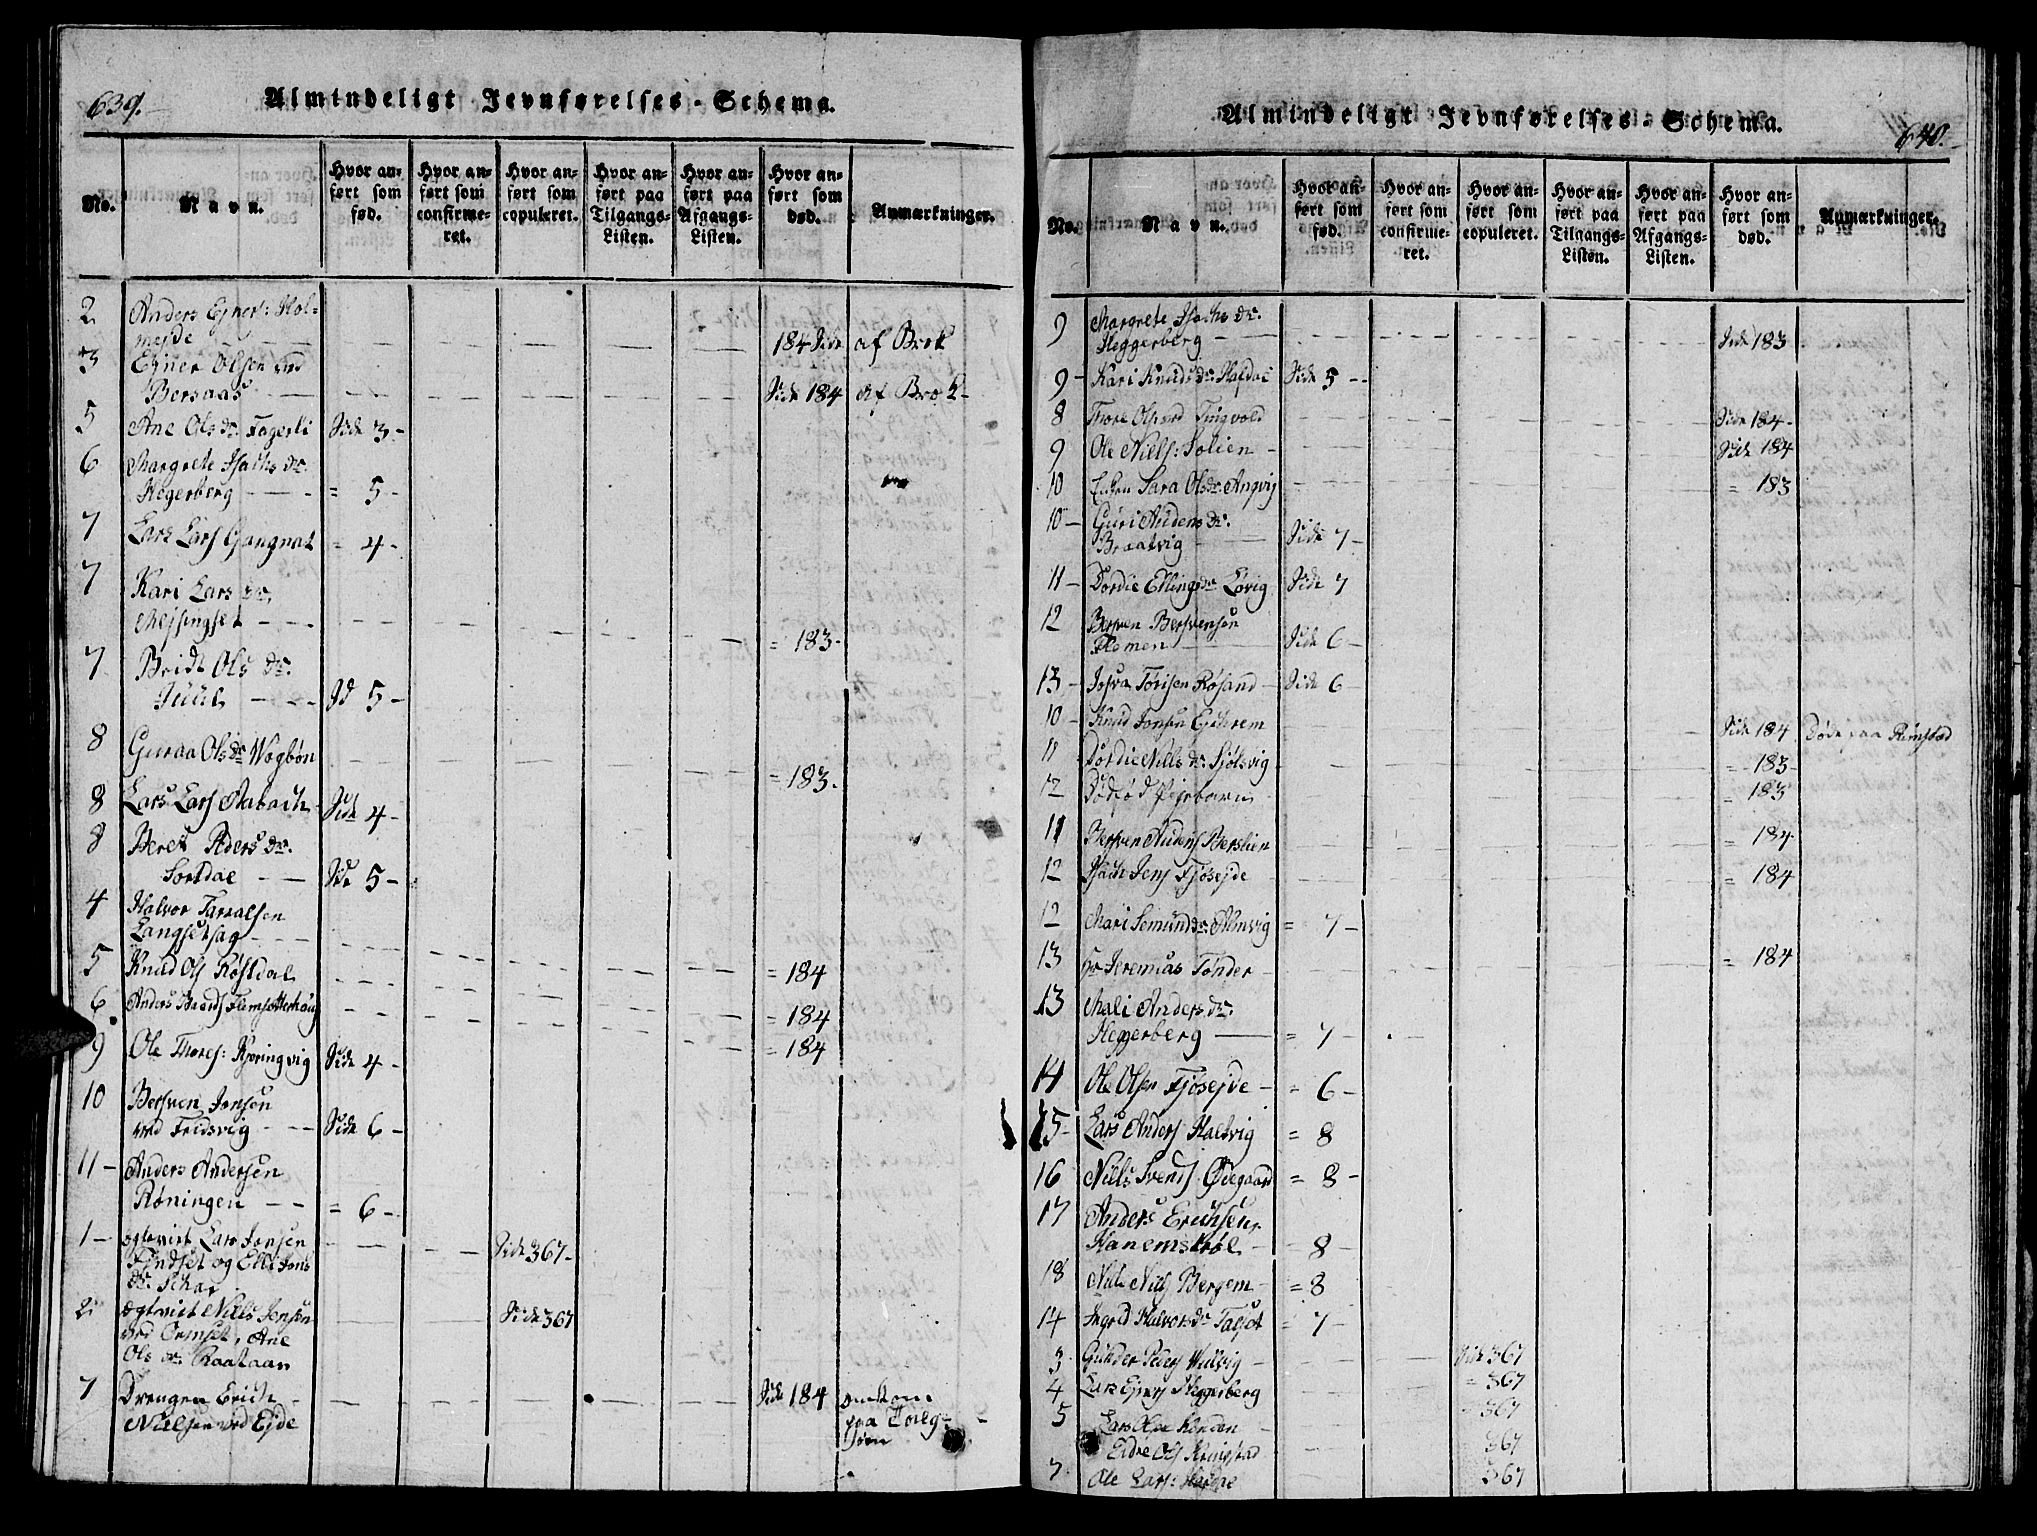 639.
Almindeligt Jevnførelses-Schema.
No.
Navn.
Hvor anført som fød.
Hvor anført som confirmeret.
Hvor anført som copuleret.
Hvor anført paa Tilgangs-Listen.
Hvor anført paa Afgangs-Listen.
Hvor anført som død.
Anmærkninger.
2 Anders Ejners: Hol=
mejde 184 Side af Brok
3 Ejner Olsen ved
Bersaas Side 184 af Brok
5 Ane Ols dr. Fagerli Side 3
6 Margrete Isachs dr.
Hegerberg = 5
7 Lars Lars Gangnat = 4
7 Kari Lars dr.
Mejsingset = 183
7 Bridt Ols dr.
Juul Sd 5
8 Guraa Ols dr Wogbøn = 183.
8 Lars Lars Aabach Side 4
8 Beret Peders dr.
Sordae Side 5
4 Halvor Tarralsen
Langsetsag = 184
5 Knud Ols Røstdal = 184
6 Anders = 184
9 Ole Thores: Kjøringvig Side 4
10 Bersven Jonsen
ved Fredsvig Side 6
11 Anders Andersen
Røningen = 6
1 ægteviet Lars Jonsen Side 367
og Elle Jons
dr. Schar
2 ægteviet Niels Jensen Side 367
ved Ane
Ols dr. Raataan
7 Drengen Erich Side 184 omkom
Nielsen ved Ejde paa
640.
Almindeligt Jevnførelses-Schema.
No.
Navn.
Hvor anført som fød.
Hvor anført som confirmeret.
Hvor anført som copuleret.
Hvor anført paa Tilgangs-Listen.
Hvor anført paa Afgangs-Listen.
Hvor anført som død.
Anmærkninger.
9 Margrete Isachs dr.
Heggerberg Side 183
9 Kari Knuds dr. Hafdae Side 5
8 Thore Tingvold Side 184
9 Ole Niels: Solien Side 184
10 Enken Sara Ols dr. Angvig = 183
10 Guri Audens dr.
Braatvig Side 7
11 Dordie Ellings dr Løvig Side 7
12 Bersven Bersvensen
Flemen Side 6
13 Josva Tørisen Røsand Side 6
10 Knud Jonsen Side 184 Døde paa
11 Dordie Nills dr. Sjølsvig = 183
12 Dødfød Pigebarn = 183
11 Bersven Audens Berslien = 184
12 Isach Jens Fjøsejde = 184
12 Mari Semunds dr. Almvig = 7
13 Hr Jeremias Tønder = 184
13 Mali Anders dr.
Heggerberg = 7
14 Ole Olsen Fjøsejde = 6
15 Lars Anders Haltvig = 8
16 Niels Svends Ødegaard = 8
17 Anders Erichsen
Hanemstrøe 8
18 Niels Niels Bergem = 8
14 Ingred Halvors dr Talset = 7
3 Gunder Peders Wullvig Side 367
4 Lars Ejners Heggerberg = 367
5 Lars Olsen 367
Ols Kringstad 367
7 Ole Lars: 367